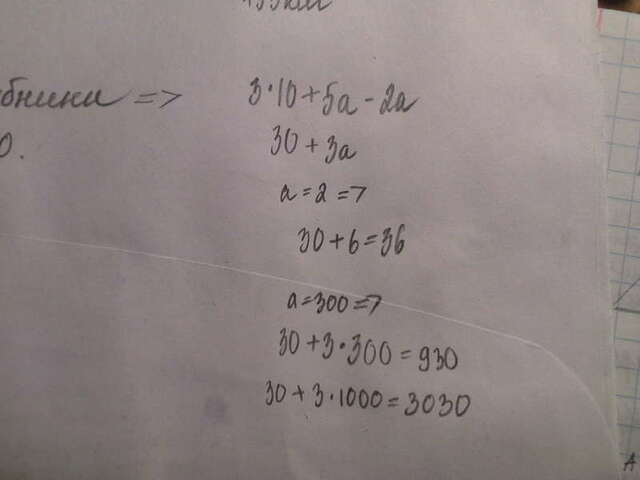 бники => 3·10+5a-2a
0. 30+3a
a=2=>
30+6=36
a=300=>
30+3·300=930
30+3·1000=3030
A